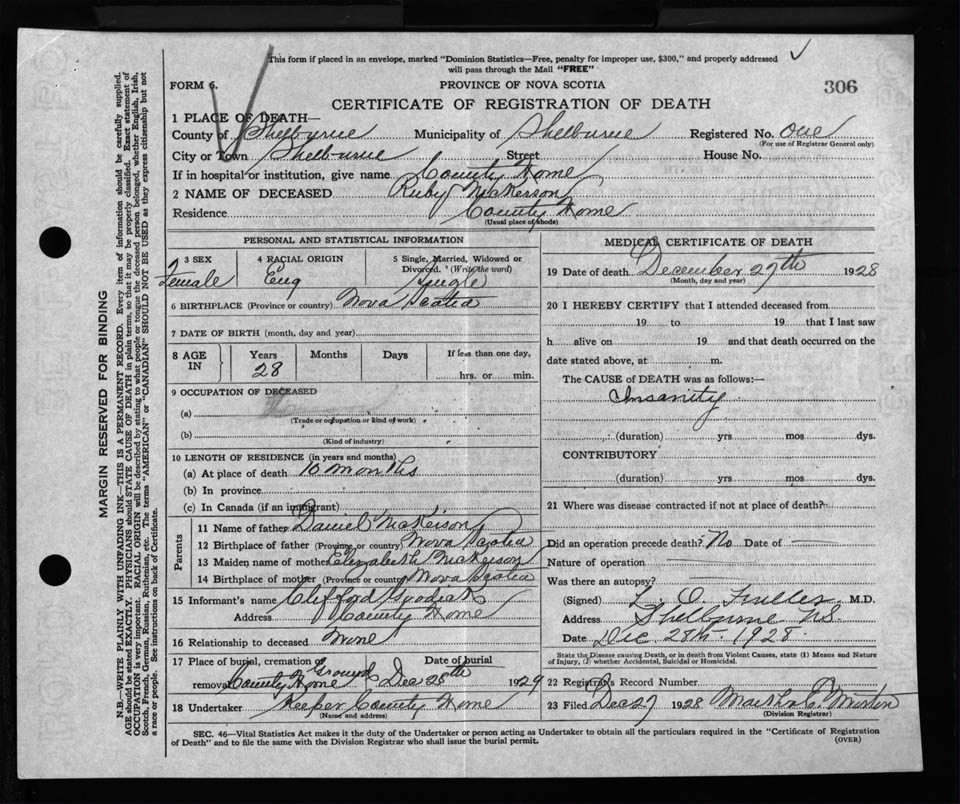 This form if placed in an envelope, marked "Dominion Statistics—Free, penalty for improper use, $300," and properly addressed
will pass through the Mail "FREE"
FORM 6. PROVINCE OF NOVA SCOTIA 306
CERTIFICATE OF REGISTRATION OF DEATH
1 PLACE OF DEATH—
County of Shelburne Municipality of Shelburne Registered No. one
(For use of Registrar General only)
City or Town Shelburne Street House No.
If in hospital or institution, give name County Home
2 NAME OF DECEASED Ruby Nickerson
Residence County Home
(Usual place of abode)
PERSONAL AND STATISTICAL INFORMATION
3 SEX 4 RACIAL ORIGIN 5 Single, Married, Widowed or
Divorced. (Write the word)
Female Eng Single
6 BIRTHPLACE (Province or country) Nova Scotia
7 DATE OF BIRTH (month, day and year)
8 AGE IN Years Months Days If less than one day,
28 hrs. or min.
9 OCCUPATION OF DECEASED
(a)
(Trade or occupation or kind of work)
(b)
(Kind of industry)
10 LENGTH OF RESIDENCE (in years and months)
(a) At place of death 10 months
(b) In province
(c) In Canada (if an immigrant)
Parents
11 Name of father Daniel Nickerson
12 Birthplace of father (Province or country) Nova Scotia
13 Maiden name of mother Elizabeth Nickerson
14 Birthplace of mother (Province or country) Nova Scotia
15 Informant's name Clifford
Address County Home
16 Relationship to deceased None
17 Place of burial, cremation or Date of burial
removal County Home Ground Dec 28th 1929
18 Undertaker Keeper County Home
(Name and address)
MEDICAL CERTIFICATE OF DEATH
19 Date of death December 27th 1928
(Month, day and year)
20 I HEREBY CERTIFY that I attended deceased from
19 to 19 that I last saw
h alive on 19 and that death occurred on the
date stated above, at m.
The CAUSE OF DEATH was as follows:—
Insanity
(duration) yrs mos dys.
CONTRIBUTORY
(duration) yrs mos dys.
21 Where was disease contracted if not at place of death?
Did an operation precede death? No Date of —
Nature of operation —
Was there an autopsy? —
(Signed) L. O. Fuller M.D.
Address Shelburne N.S.
Date Dec 28th 1928.
State the Disease causing Death, or in death from Violent Causes, state (1) Means and Nature
of Injury, (2) whether Accidental, Suicidal or Homicidal.
22 Registrar's Record Number
23 Filed Dec 27 1928 Martha C.
(Division Registrar)
SEC. 46—Vital Statistics Act makes it the duty of the Undertaker or person acting as Undertaker to obtain all the particulars required in the "Certificate of Registration
of Death" and to file the same with the Division Registrar who shall issue the burial permit. (OVER)
MARGIN RESERVED FOR BINDING
N.B.—WRITE PLAINLY WITH UNFADING INK—THIS IS A PERMANENT RECORD. Every item of information should be carefully supplied.
AGE should be stated EXACTLY. PHYSICIANS should STATE CAUSE OF DEATH in plain terms, so that it may be properly classified. Exact statement of
OCCUPATION is very important. RACIAL ORIGIN will be described by stating to what people or tongue the deceased person belonged, whether English, Irish,
Scotch, French, German, Russian, Ruthenian, etc. The terms "AMERICAN" or "CANADIAN" SHOULD NOT BE USED as they express citizenship but not
a race or people. See instructions on back of Certificate.